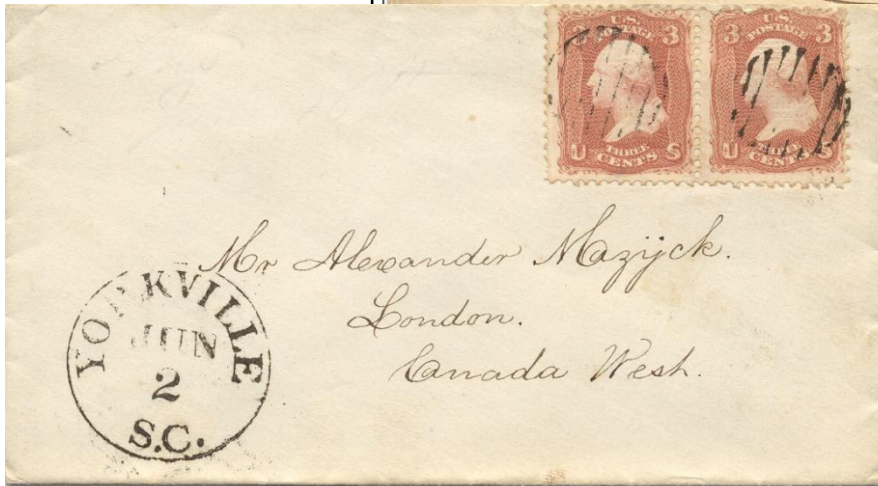 U.S. POSTAGE 3 3
THREE CENTS
U S
U.S. POSTAGE 3 3
CENTS
U S
Mr Alexander Mazijck.
London.
Canada West.
YORKVILLE
JUN
2
S.C.